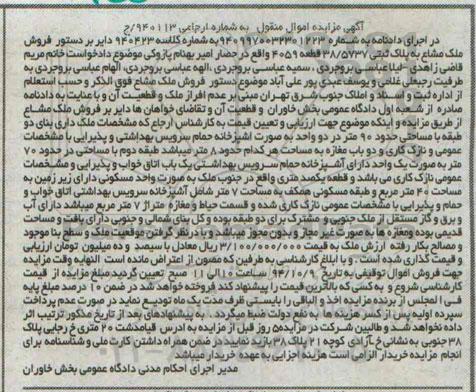 آگهی مزایده اموال منقول به شماره ارجاعی ۹۴۰۱۱۳/ج
در اجرای دادنامه به شماره ۹۴۰۹۹۷۰۰۳۲۳۰۱۲۲۳ به شماره کلاسه ۹۴۰۴۲۳ دایر بر دستور فروش
ملک مشاع به پلاک ثبتی ۳۸/۵۷۳۷ قطعه ۴۰۵۹ واقع در حصار امیر بهنام پازوکی موضوع دادخواست خانم مریم
قاضی زاهدی -لیلا عباسی بروجردی ، سمیه عباسی بروجردی ، الهه عباسی بروجردی، الهام عباسی بروجردی به
طرفیت رجبعلی غلامی و یوسف عبدی پور علی آباد موضوع دستور فروش ملک مشاع فوق الذکر و حسب استعلام
از اداره ثبت و اسناد و املاک جنوب شرق تهران مبنی بر عدم افراز ملک و قطعیت آن و با عنایت به دادنامه
صادره از شعبه اول دادگاه عمومی بخش خاوران و قطعیت آن و تقاضای خواهان ها دایر بر فروش ملک مشاع
از طریق مزایده و اینکه موضوع جهت ارزیابی و تعیین قیمت به کارشناس ارجاع که مشخصات ملک دارای بنای دو
طبقه با مساحتی حدود ۹۰ متر در دو واحد به صورت آشپزخانه حمام سرویس بهداشتی و پذیرایی با مشخصات
عمومی و نازک کاری و دو باب مغازه به مساحت هر کدام حدود ۸ متر میباشد طبقه دوم با مساحتی در حدود ۷۰
متر به صورت یک واحد دارای آشپزخانه حمام سرویس بهداشتی یک باب اتاق خواب و پذیرایی و مشخصات
عمومی نازک کاری می باشد و قطعه یکصد متری واقع در جنوب ملک به صورت واحد مسکونی دارای زیر زمین به
مساحت ۴۰ متر مربع و طبقه مسکونی همکف به مساحت ۷ متر شامل آشپزخانه سرویس بهداشتی اتاق خواب و
حمام و پذیرایی با مشخصات عمومی نازک کاری شده و قسمت حیاط و مغازه متراژ ۷ متر مربع میباشد دارای آب
و برق و گاز مستقل از ملک جنوبی و مشترک برای دو طبقه بوده و کل بنای شمالی و جنوبی دارای بافت و مساحت
قدیمی بوده و مغازه ها به صورت غیر مجاز و بدون مجوز میباشد و با در نظر گرفتن موقعیت ملک و سطح بنا موجود
و مصالح بکار رفته ارزش ملک به قیمت ۳/۱۰۰/۰۰۰/۰۰۰ ریال معادل با سیصد و ده میلیون تومان ارزیابی
و قیمت گذاری شده است، و با ابلاغ کارشناسی به طرفین که مصون از اعتراض مانده است النهایه وقت مزایده
جهت فروش اموال توقیفی به تاریخ ۹۴/۱۰/۹ ساعت ۱۰الی ۱۱ صبح تعیین گردید مبلغ مزایده از قیمت
کارشناسی شروع و به کسی که بالاترین قیمت را پیشنهاد کند فروخته خواهد شد در ضمن ۱۰ درصد مبلغ پایه
فی المجلس از برنده مزایده اخذ و الباقی را بایستی ظرف مدت یک ماه تودیع نماید در صورت عدم پرداخت
سپرده اولیه پس از کسر هزینه ها به نفع دولت ضبط میگردد. به پیشنهادهای بعد از تاریخ مذکور ترتیب اثر
داده نخواهد شد و طالبین شرکت در مزایده۵ روز قبل از مزایده به آدرس قیامدشت ۲۰ متری خ رجایی پلاک
۳۸ جنوبی به نشانی خ آزادی کوچه ۲۱ پلاک ۳۸ بازدید نمایند در ضمن همراه داشتن کارت ملی و شناسنامه برای
انجام مزایده خریدار الزامی است هزینه اجرایی به عهده خریدار میباشد
مدیر اجرای احکام مدنی دادگاه عمومی بخش خاوران